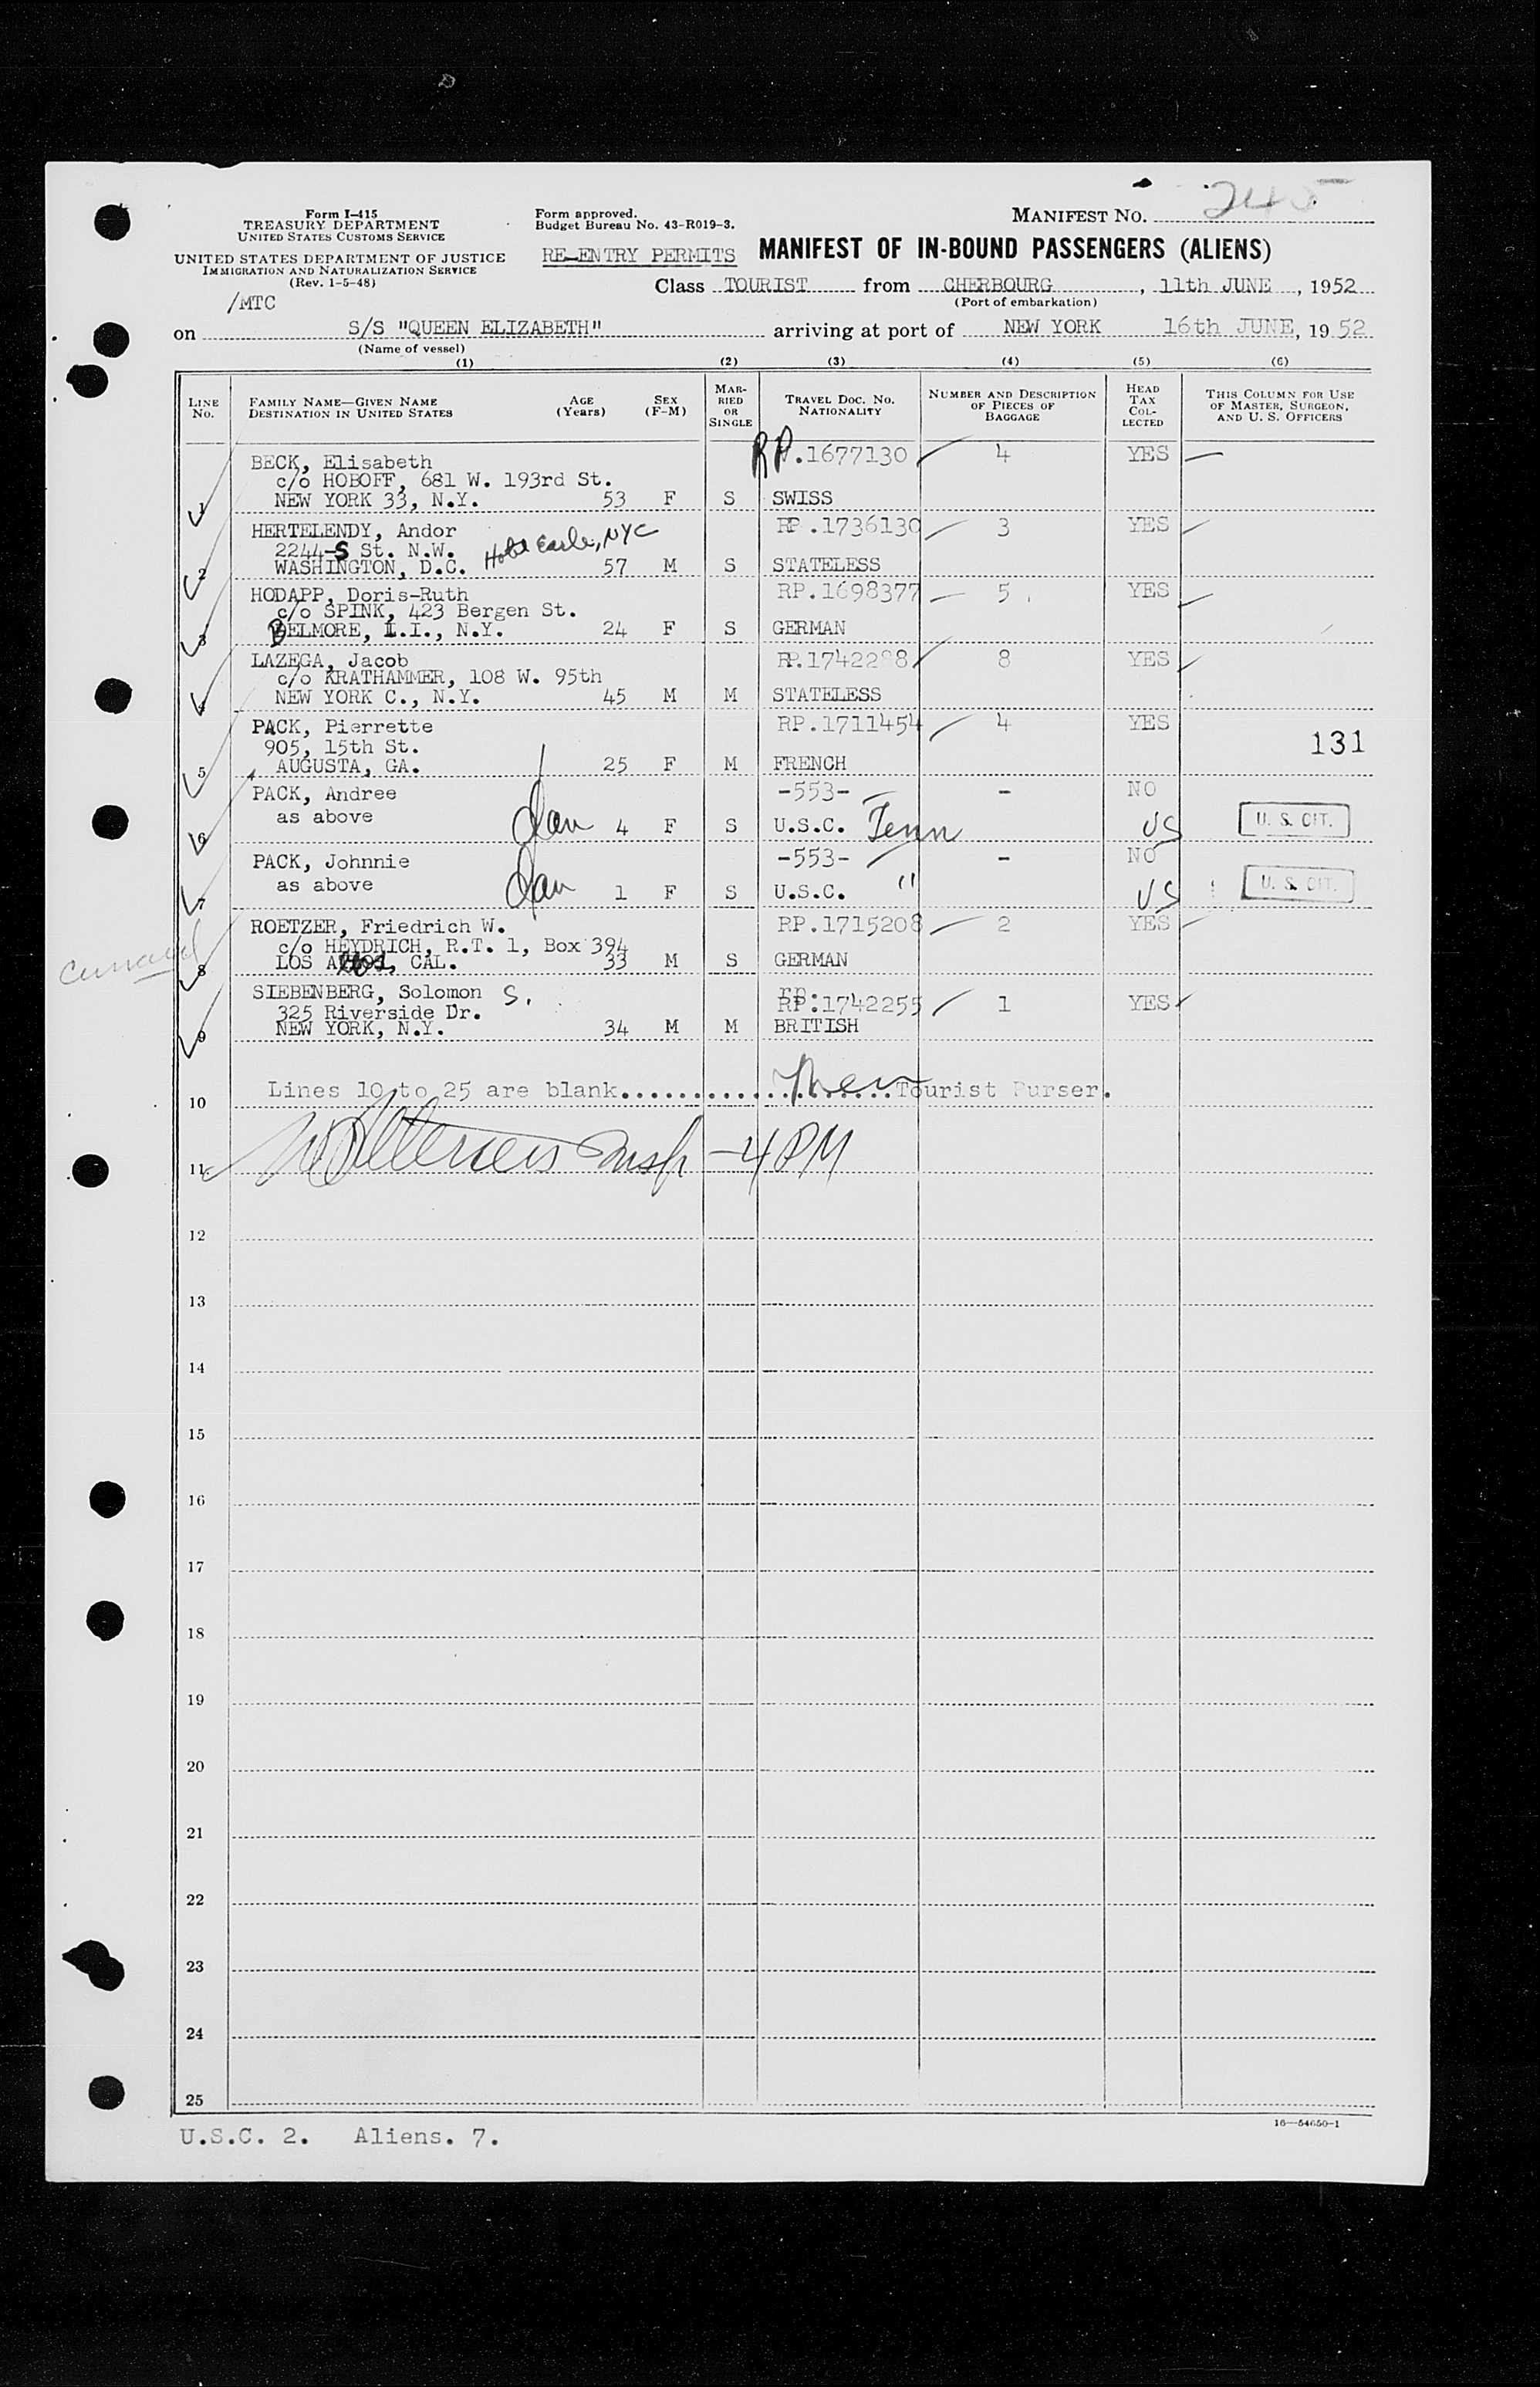 Form I-415
TREASURY DEPARTMENT
UNITED STATES CUSTOMS SERVICE
UNITED STATES DEPARTMENT OF JUSTICE
IMMIGRATION AND NATURALIZATION SERVICE
(Rev. 1-5-48)
/MTC
Form approved.
Budget Bureau No. 43-R019-3.
RE-ENTRY PERMITS
MANIFEST NO. 245
MANIFEST OF IN-BOUND PASSENGERS (ALIENS)
Class TOURIST from CHERBOURG, 11th JUNE, 1952
(Port of embarkation)
on S/S "QUEEN ELIZABETH" arriving at port of NEW YORK 16th JUNE, 1952
(Name of vessel)
(1) (2) (3) (4) (5) (6)
LINE No. FAMILY NAME—GIVEN NAME DESTINATION IN UNITED STATES AGE (Years) SEX (F-M) MARRIED OR SINGLE TRAVEL DOC. NO. NATIONALITY NUMBER AND DESCRIPTION OF PIECES OF BAGGAGE HEAD TAX COLLECTED THIS COLUMN FOR USE OF MASTER, SURGEON, AND U. S. OFFICERS
BECK, Elisabeth RP.1677130 4 YES
c/o HOBOFF, 681 W. 193rd St.
1 NEW YORK 33, N.Y. 53 F S SWISS
HERTELENDY, Andor RP.1736130 3 YES
2244-S St. N.W. Hotel Earle, NYC
2 WASHINGTON, D.C. 57 M S STATELESS
HODAPP, Doris-Ruth RP.1698377 5 YES
c/o SPINK, 423 Bergen St.
3 BELMORE, L.I., N.Y. 24 F S GERMAN
LAZEGA, Jacob RP.1742298 8 YES
c/o KRATHAMMER, 108 W. 95th
4 NEW YORK C., N.Y. 45 M M STATELESS
PACK, Pierrette RP.1711454 4 YES
905, 15th St. 131
5 AUGUSTA, GA. 25 F M FRENCH
PACK, Andree -553- - NO
as above
6 4 F S U.S.C. Tenn US U. S. CIT.
PACK, Johnnie -553- - NO
as above
7 1 F S U.S.C. " US U. S. CIT.
ROETZER, Friedrich W. RP.1715208 2 YES
c/o HEYDRICH, R.T. 1, Box 394
8 LOS CAL. 33 M S GERMAN
SIEBENBERG, Solomon S. rp.
325 Riverside Dr. RP.1742255 1 YES
9 NEW YORK, N.Y. 34 M M BRITISH
Lines 10 to 25 are blank.......................Tourist Purser.
10
11 Insp - 4 PM
12
13
14
15
16
17
18
19
20
21
22
23
24
25
16—54650-1
U.S.C. 2. Aliens. 7.